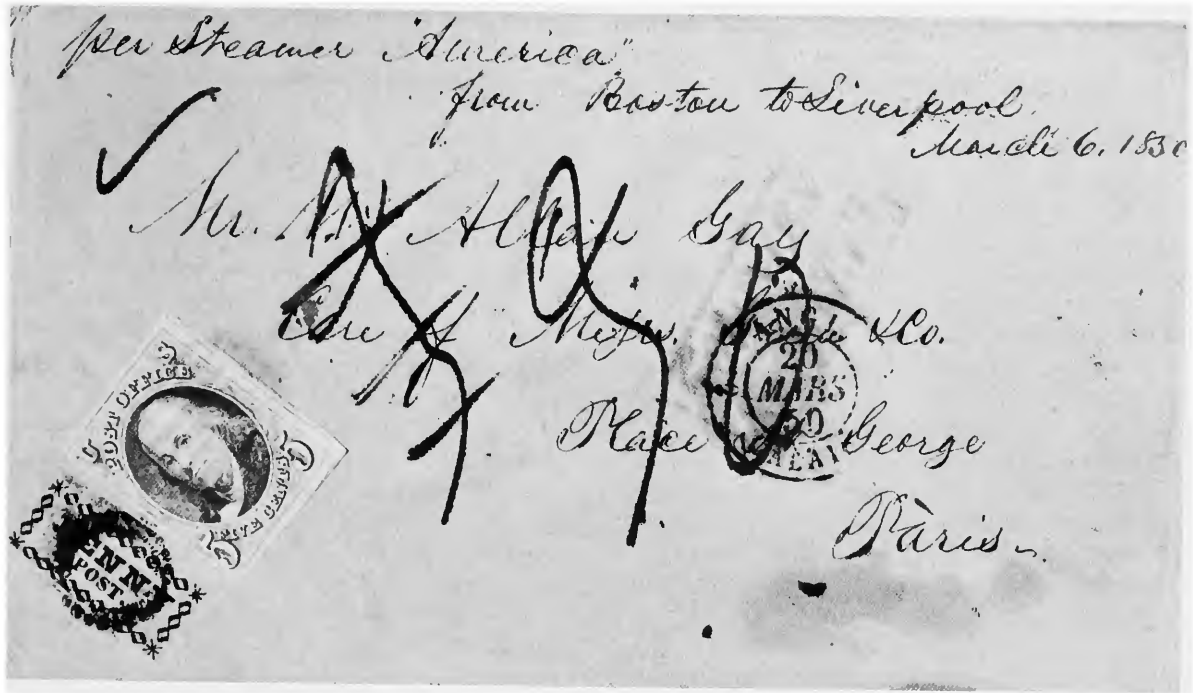 per Steamer "America"
from Boston to Liverpool.
March 6, 1850
Mr. W. Allan Gay
Care of Messrs. & Co.
Place George
Paris
ANGL.
20
MARS
50
CALAIS
POST OFFICE
FIVE CENTS
5 5
PENNY
POST